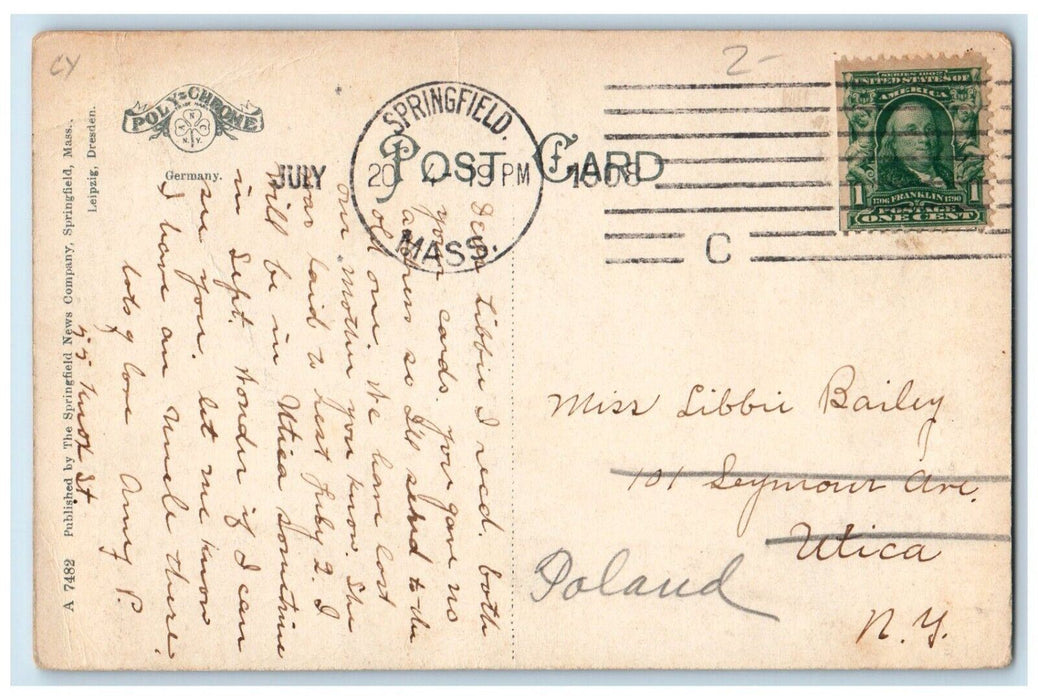 CY
2-
POLY-CHROME
N
N.Y.
Germany.
SPRINGFIELD.
JULY 20 4-19 PM 1908
MASS.
C
POST CARD
SERIES 1902
UNITED STATES OF
AMERICA
1 1
1706 FRANKLIN 1790
POSTAGE
ONE CENT
Dear Libbie I recd. both
your cards. you gave no
address so Ill send to the
old one. We have lost
our Mother you know. She
was laid to rest July 2. I
will be in Utica Sometime
in Sept. Wonder if I can
see you. let me know
I have an Uncle there.
lots of love Amy P.
55 Knox St.
Miss Libbie Bailey
101 Seymour Ave.
Utica
N.Y.
Poland
A 7482 Published by The Springfield News Company, Springfield, Mass.,
Leipzig, Dresden.